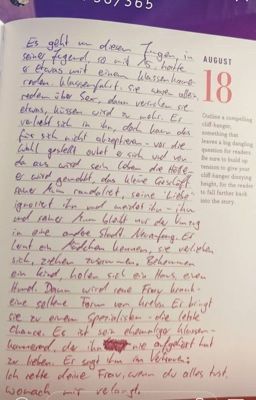 230/365
Es geht um diesen Jungen, in
seiner Jugend, so mit 15, hatte
er etwas mit einem Klassenkame-
raden. Klassenfahrt. Sie waren allein
reden über Sex, dann versuchen sie
etwas, küssen wird zu mehr. Er
verliebt sich in ihn, doch kann das
für sich nicht akzeptieren - vor die
Wahl gestellt outet er sich und von
da aus wird sein Leben die Hölle,
er wird gemobbt, das kleine Geschäft
seiner Mum randaliert, seine "Liebe"
ignoriert ihn und ihm
und seiner Mum bleibt nur der Umzug
in eine andere Stadt. Neuanfang. Er
lernt ein Mädchen kennen, sie verlieben
sich, ziehen zusammen, bekommen
ein Kind, holen sich ein Haus, einen
Hund. Dann wird seine Frau krank -
eine seltene Form von Krebs. Er bringt
sie zu einem Spezialisten - die letzte
Chance. Es ist sein ehemaliger Klassen-
kammerad, der ihn nie aufgehört hat
zu lieben. Er sagt ihm im Vertrauen:
Ich rette deine Frau, wenn du alles tust,
wonach mir verlangt.
AUGUST
18
Outline a compelling
cliff-hanger,
something that
leaves a big dangling
question for readers.
Be sure to build up
tension to give your
cliff-hanger dizzying
height, for the reader
to fall further back
into the story.